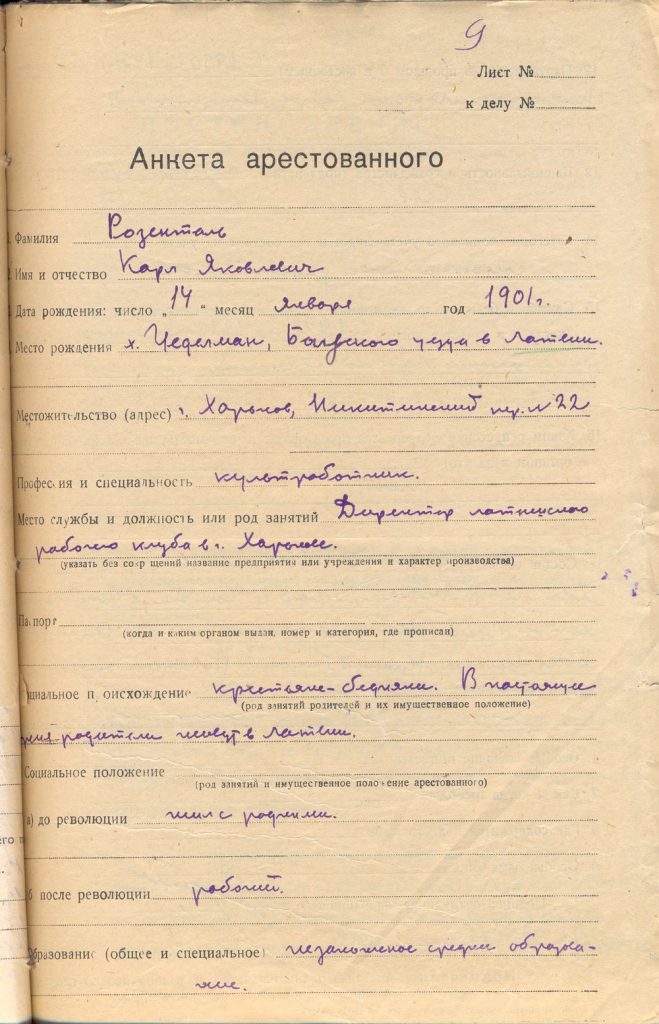 9
Лист №
к делу №
Анкета арестованного
Фамилия Розенталь
Имя и отчество Карл Яковлевич
Дата рождения: число „14“ месяц января год 1901 г.
Место рождения х. Цеделман, Бауского уезда в Латвии.
Местожительство (адрес) г. Харьков, Никитинский пер. № 22
Профессия и специальность культработник.
Место службы и должность или род занятий Директор латышского
рабочего клуба в г. Харькове.
(указать без сокр щений название предприятия или учреждения и характер производства)
Паспорт
(когда и каким органом выдан, номер и категория, где прописан)
оциальное п оисхождение крестьяне-бедняки. В настоящее
(род занятий родителей и их имущественное положение)
время родители живут в Латвии.
Социальное положение
(род занятий и имущественное положение арестованного)
а) до революции жил с родными.
его п
б после революции рабочий.
Образование (общее и специальное) незаконченое среднее образова-
ние.